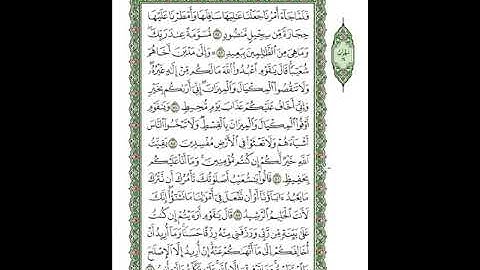 فَلَمَّا جَآءَ أَمْرُنَا جَعَلْنَا عَٰلِيَهَا سَافِلَهَا وَأَمْطَرْنَا عَلَيْهَا
حِجَارَةً مِّن سِجِّيلٍ مَّنضُودٍ ٨٢ مُّسَوَّمَةً عِندَ رَبِّكَ
وَمَا هِىَ مِنَ ٱلظَّٰلِمِينَ بِبَعِيدٍ ٨٣ وَإِلَىٰ مَدْيَنَ أَخَاهُمْ
شُعَيْبًا قَالَ يَٰقَوْمِ ٱعْبُدُوا۟ ٱللَّهَ مَا لَكُم مِّنْ إِلَٰهٍ غَيْرُهُۥ
وَلَا تَنقُصُوا۟ ٱلْمِكْيَالَ وَٱلْمِيزَانَ إِنِّىٓ أَرَىٰكُم بِخَيْرٍ
وَإِنِّىٓ أَخَافُ عَلَيْكُمْ عَذَابَ يَوْمٍ مُّحِيطٍ ٨٤ وَيَٰقَوْمِ
أَوْفُوا۟ ٱلْمِكْيَالَ وَٱلْمِيزَانَ بِٱلْقِسْطِ وَلَا تَبْخَسُوا۟ ٱلنَّاسَ
أَشْيَآءَهُمْ وَلَا تَعْثَوْا۟ فِى ٱلْأَرْضِ مُفْسِدِينَ ٨٥ بَقِيَّتُ
ٱللَّهِ خَيْرٌ لَّكُمْ إِن كُنتُم مُّؤْمِنِينَ وَمَآ أَنَا۠ عَلَيْكُم
بِحَفِيظٍ ٨٦ قَالُوا۟ يَٰشُعَيْبُ أَصَلَوٰتُكَ تَأْمُرُكَ أَن نَّتْرُكَ
مَا يَعْبُدُ ءَابَآؤُنَآ أَوْ أَن نَّفْعَلَ فِىٓ أَمْوَٰلِنَا مَا نَشَٰٓؤُا۟ إِنَّكَ
لَأَنتَ ٱلْحَلِيمُ ٱلرَّشِيدُ ٨٧ قَالَ يَٰقَوْمِ أَرَءَيْتُمْ إِن كُنتُ
عَلَىٰ بَيِّنَةٍ مِّن رَّبِّى وَرَزَقَنِى مِنْهُ رِزْقًا حَسَنًا وَمَآ أُرِيدُ أَنْ
أُخَالِفَكُمْ إِلَىٰ مَآ أَنْهَىٰكُمْ عَنْهُ إِنْ أُرِيدُ إِلَّا ٱلْإِصْلَٰحَ